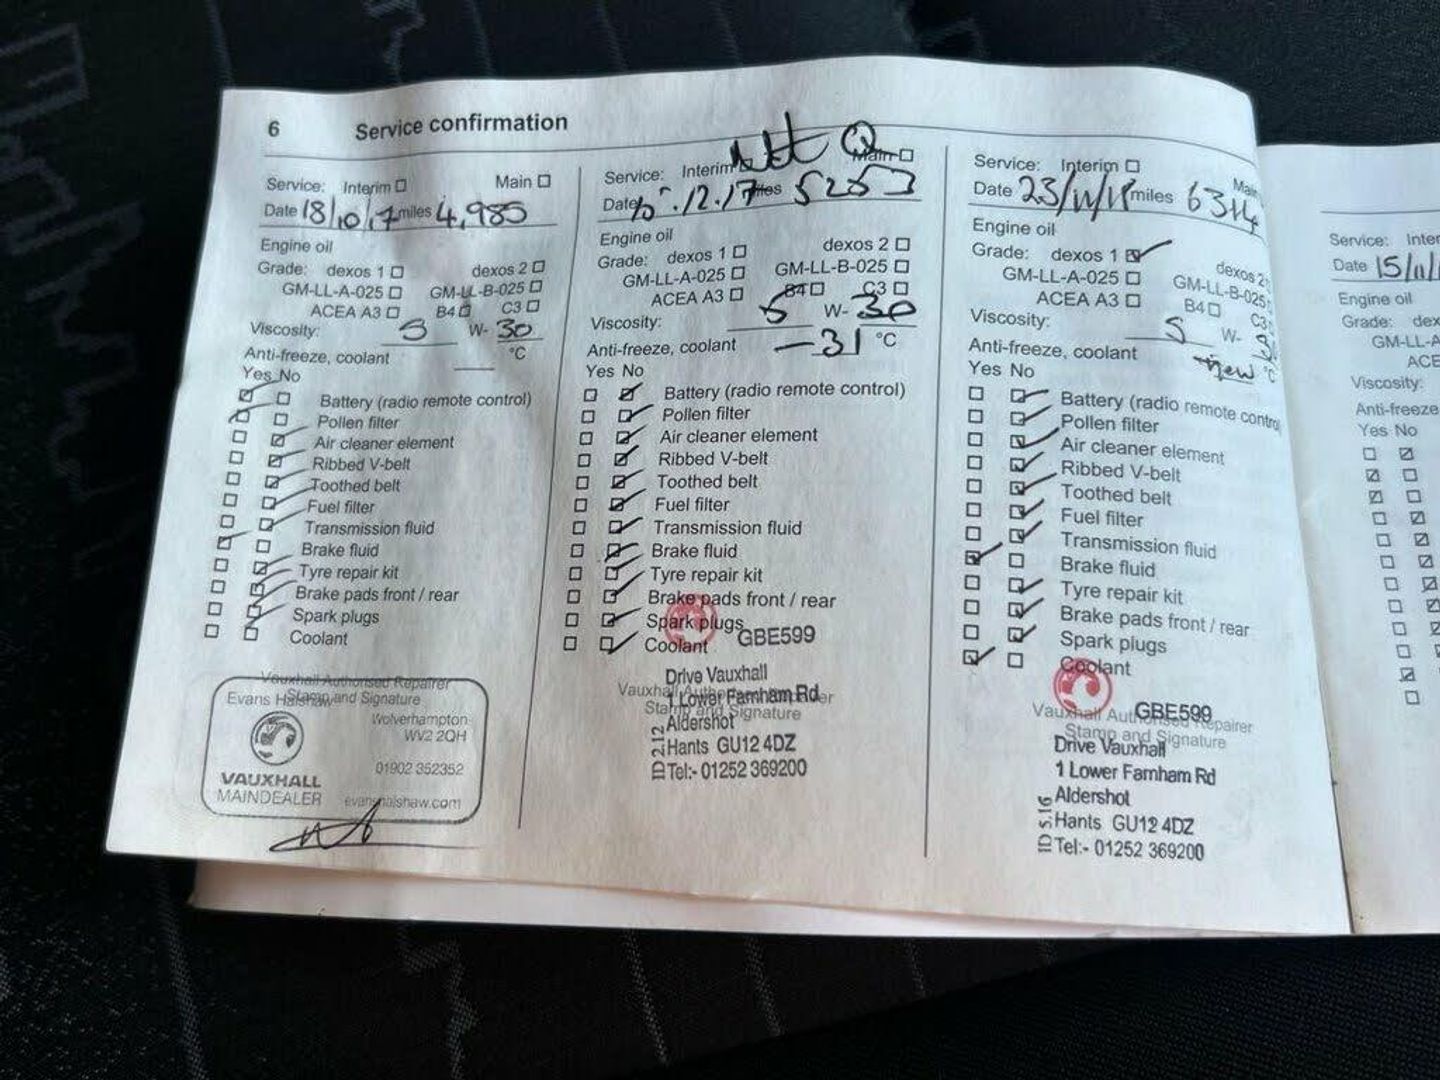 6 Service confirmation
Service: Interim Main
Date 18/10/17 miles 4,985
Engine oil
Grade: dexos 1 dexos 2
GM-LL-A-025 GM-LL-B-025
ACEA A3 B4 C3
Viscosity: 5 W- 30
Anti-freeze, coolant °C
Yes No
Battery (radio remote control)
Pollen filter
Air cleaner element
Ribbed V-belt
Toothed belt
Fuel filter
Transmission fluid
Brake fluid
Tyre repair kit
Brake pads front / rear
Spark plugs
Coolant
Vauxhall Authorised Repairer
Stamp and Signature
Evans Halshaw
Wolverhampton
WV2 2QH
01902 352352
VAUXHALL
MAINDEALER
evanshalshaw.com
Service: Interim Main
Date .12.17 miles 5253
Engine oil
Grade: dexos 1 dexos 2
GM-LL-A-025 GM-LL-B-025
ACEA A3 B4 C3
Viscosity: 5 W- 30
Anti-freeze, coolant -31 °C
Yes No
Battery (radio remote control)
Pollen filter
Air cleaner element
Ribbed V-belt
Toothed belt
Fuel filter
Transmission fluid
Brake fluid
Tyre repair kit
Brake pads front / rear
Spark plugs
Coolant
GBE599
Vauxhall Authorised Repairer
Stamp and Signature
Drive Vauxhall
1 Lower Farnham Rd
Aldershot
Hants GU12 4DZ
Tel:- 01252 369200
ID 2.12
Service: Interim Main
Date 23/11/18 miles 6314
Engine oil
Grade: dexos 1 dexos 2
GM-LL-A-025 GM-LL-B-025
ACEA A3 B4 C3
Viscosity: 5 W-
Anti-freeze, coolant new °C
Yes No
Battery (radio remote control)
Pollen filter
Air cleaner element
Ribbed V-belt
Toothed belt
Fuel filter
Transmission fluid
Brake fluid
Tyre repair kit
Brake pads front / rear
Spark plugs
Coolant
GBE599
Vauxhall Authorised Repairer
Stamp and Signature
Drive Vauxhall
1 Lower Farnham Rd
Aldershot
Hants GU12 4DZ
Tel:- 01252 369200
ID 5.16
Service: Inter
Date 15/11/
Engine oil
Grade: dex
GM-LL-A
ACE
Viscosity:
Anti-freeze
Yes No